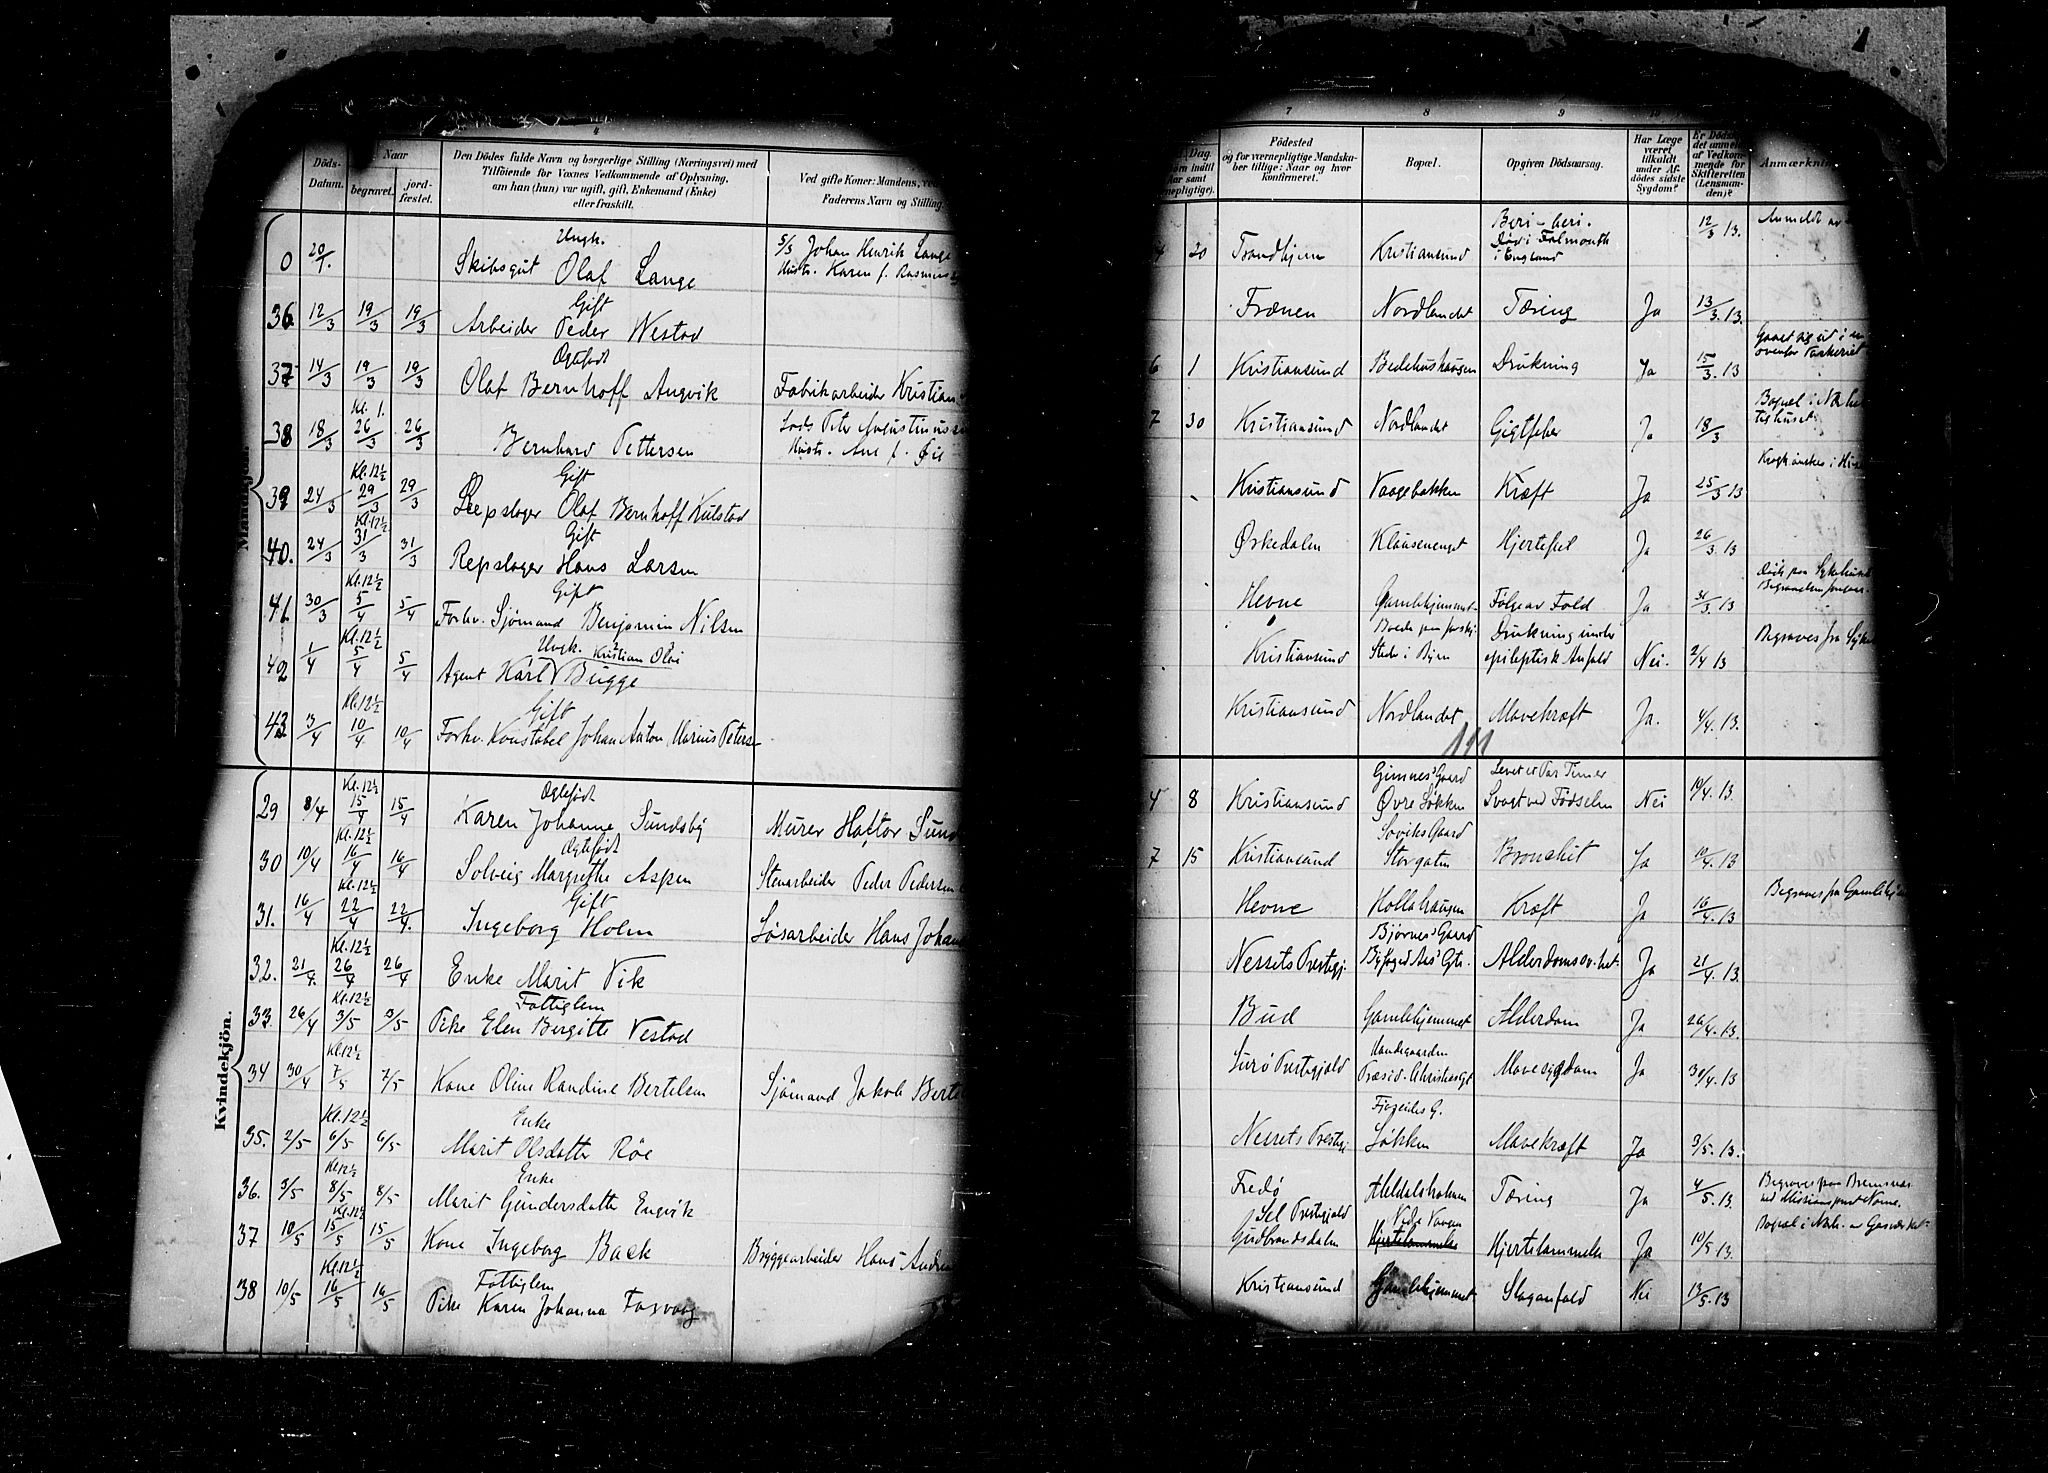 4
Döds-
Datum.
Naar
begravet.
jord-
fæstet.
Den Dödes fulde Navn og borgerlige Stilling (Næringsvei) med
Tilföiende for Voxnes Vedkommende af Oplysning,
om han (hun) var ugift, gift, Enkemand (Enke)
eller fraskilt.
Ved gifte Koner: Mandens,
Faderens Navn og Stilling
0 20/1. Ungk.
Skibsgut Olaf Lange
S/S Johan Henrik Lange
Hustr. Karen f. Rasmus
36 12/3 19/3 19/3 Gift
Arbeider Peder Nestad
37 14/3 19/3 19/3 Ægtefødt
Olaf Bernhoff Angvik Fabrikarbeider Kristian
38 18/3 Kl. 1. 26/3 26/3 Bernhard Pettersen
Lods Peter Augustinuss
Hustr. Ane f.
39 24/3 Kl. 12½ 29/3 29/3 Gift
Repslager Olaf Bernhoff Kulstad
40. 24/3 Kl. 12½ 31/3 31/3 Gift
Repslager Hans Larsen
41. 30/3 Kl. 12½ 5/4 5/4 Gift
Forhv. Sjömand Benjamin Nilsen
42 1/4 Kl. 12½ 5/4 5/4 Ungk. Kristian Olai
Agent Karl Bugge
43. 3/4 Kl. 12½ 10/4 10/4 Gift
Forhv. Konstabel Johan Anton Marius Peters
Kvindekjön.
29 8/4 Kl. 12½ 15/4 15/4 Ægtefødt
Karen Johanne Sundsby Murer Haftor Sund
30 10/4 Kl. 12½ 16/4 16/4 Ægtefødt
Solveig Margrethe Aspen Stenarbeider Peder Pedersen
31. 16/4 Kl. 12½ 22/4 22/4. Gift
Ingeborg Holm Løsarbeider Hans Johan
32. 21/4. Kl. 12½ 26/4 26/4 Enke Marit Vik
33. 26/4 Kl. 12½ 3/5 3/5 Fattiglem
Pike Elen Bergitte Nestad
34 30/4 Kl. 12½ 7/5 7/5 Kone Oline Randine Bertelsen Sjömand Jakob Bert
35. 2/5 Kl. 12½ 6/5 6/5 Enke
Marit Olsdatter Röe
36. 3/5 Kl. 12½ 8/5 8/5 Enke
Marit Gundersdatter Engvik
37 10/5 Kl. 12½ 15/5 15/5 Kone Ingeborg Back Bryggearbeider Hans Andr
38 10/5 Kl. 12½ 16/5 16/5 Fattiglem
Pike Karen Johanna Fosvaag
7 8 9
Dag
Födested
og for værnepligtige Mandska-
ber tillige: Naar og hvor
konfirmeret.
Bopæl.
Opgiven Dödsaarsag.
Har Læge
været
tilkaldt
under Af-
dödes sidste
Sygdom?
Er Döds
det anmel
af Vedkom-
mende for
Skifteretten
(Lensman-
den)?
Anmærknin
20 Trondhjem Kristiansund Beri-beri.
Död i Falmouth
i England
12/3 13. Anmeldt av
Frænen Nordlandet Tæring Ja 13/3. 13.
6 1 Kristiansund Bedehushaugen Drukning Ja 15/3. 13
7 30 Kristiansund Nordlandet Gigtfeber Ja 18/3
Kristiansund Vaagebakken Kræft Ja 25/3 13
Ørkedalen Klausenenget Hjertefeil Ja 26/3. 13
Hevne Gamlehjemmet Følge av Fald Ja 31/3. 13
Død paa Sykehuset
Kristiansund Boede paa forskj.
Steder i Byen
Drukning under
epileptisk Anfald Nei. 2/4 13 Begraves fra Syke
Kristiansund Nordlandet Mavekræft Ja. 4/4. 13.
111
4 8 Kristiansund Gimnes' Gaard
Øvre Løkken
Levet et Par Timer
Svagt ved Fødselen Nei 10/4. 13.
7 15 Kristiansund Soviks Gaard
Storgaten Bronchit Ja 10/4. 13
Hevne Hollahaugen Kræft Ja 16/4. 13 Begraves fra Gamlehj
Nessets Prestegj. Bjørnes' Gaard
Byfoged Aas' Gte. Alderdomssv.het. Ja 21/4. 13.
Bud Gamlehjemmet Alderdom Ja 26/4. 13.
Surö Prestegjeld
Præsid. Christies Gt Mavesygdom Ja 30/4. 13
Nessets Prestegj Løkken Mavekræft Ja 3/5. 13.
Fredö Meldalsholmen Tæring Ja 4/5. 13.
Begraves paa Bremsnes
Sel Prestegjeld
Gudbrandsdalen Nedr Vaagen
Hjertelammelse Hjertelammelse Ja 10/5 13.
Kristiansund Gamlehjemmet Slaganfald Nei 13/5. 13